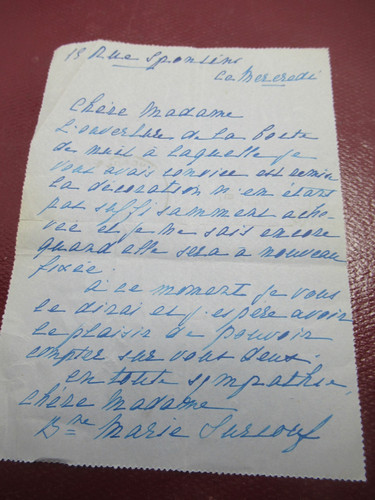 Rue Spontini
ce Mercredi
Chère Madame
L'ouverture de la boite
de nuit à laquelle je
vous avais conviée est remise
la décoration n'en étant
pas suffisamment ache-
vée et je ne sais encore
quand elle sera à nouveau
fixée.
à ce moment je vous
le dirai et j'espère avoir
le plaisir de pouvoir
compter sur vous deux.
en toute sympathie,
chère Madame
Bne Marie